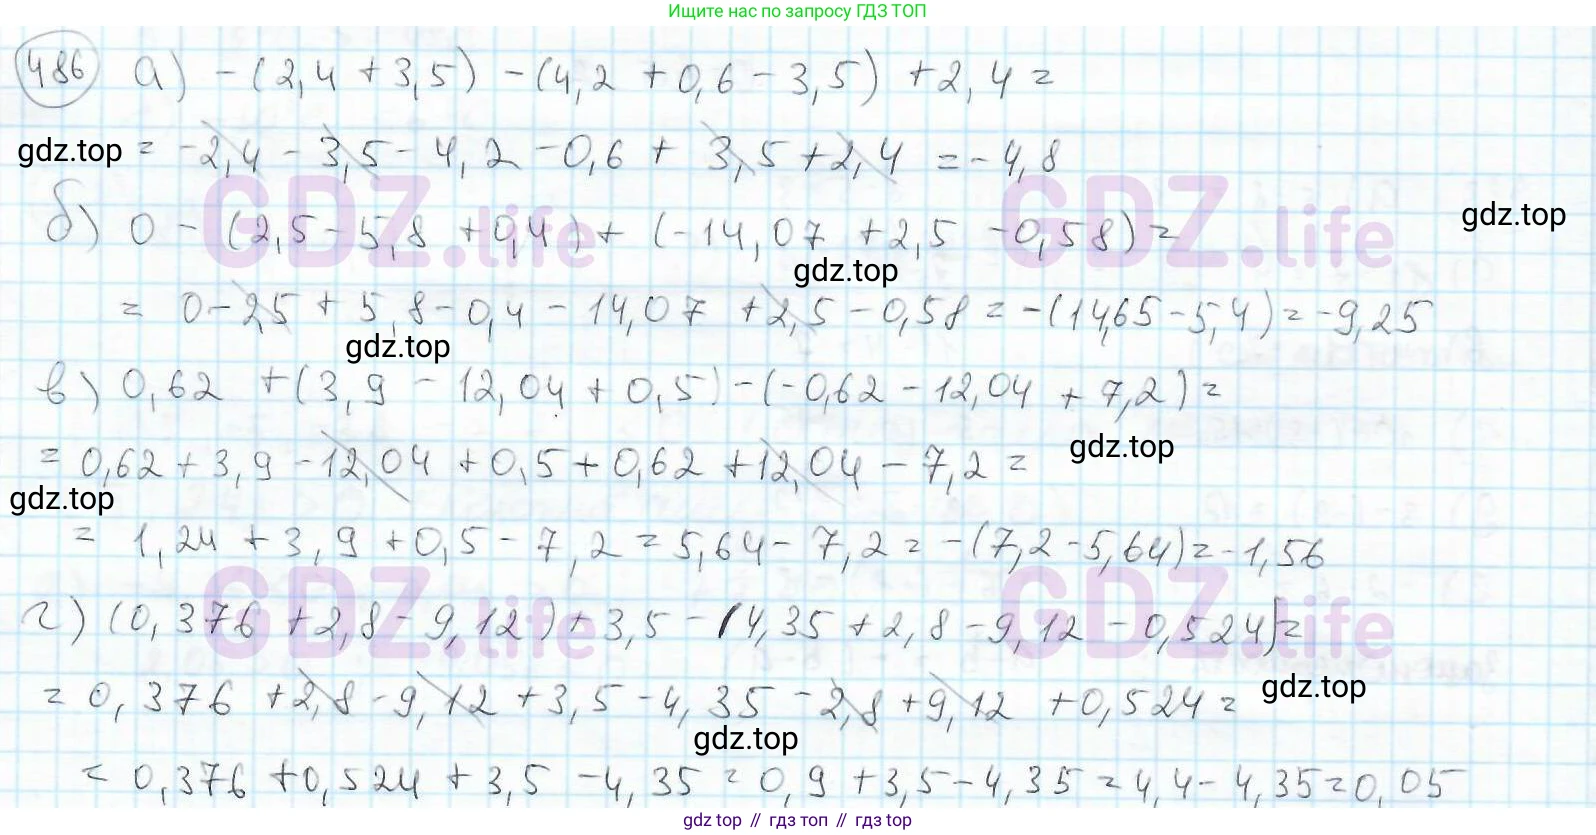 Ищите нас по запросу ГДЗ ТОП
486 а) -(2,4+3,5) -(4,2 +0,6-3,5) +2,4=
gdz.top = -2,4-3,5-4,2-0,6+3,5+2,4 =-4,8
GDZ.life GDZ.life
б) 0-(2,5-5,8+0,4)+(-14,07+2,5-0,58)=
gdz.top
gdz.top
= 0-2,5+5,8-0,4-14,07+2,5-0,58=-(14,65-5,4)=-9,25
gdz.top
в) 0,62 +(3,9-12,04+0,5)-(-0,62-12,04+7,2)=
gdz.top
=0,62+3,9-12,04+0,5+0,62+12,04-7,2=
gdz.top
= 1,24+3,9+0,5-7,2=5,64-7,2=-(7,2-5,64)=-1,56
GDZ.life GDZ.life
г) (0,376+2,8-9,12)+3,5-(4,35+2,8-9,12-0,524)=
=0,376+2,8-9,12+3,5-4,35-2,8+9,12+0,524=
gdz.top
gdz.top
=0,376+0,524+3,5-4,35=0,9+3,5-4,35=4,4-4,35=0,05
gdz top // гдз топ // гдз top